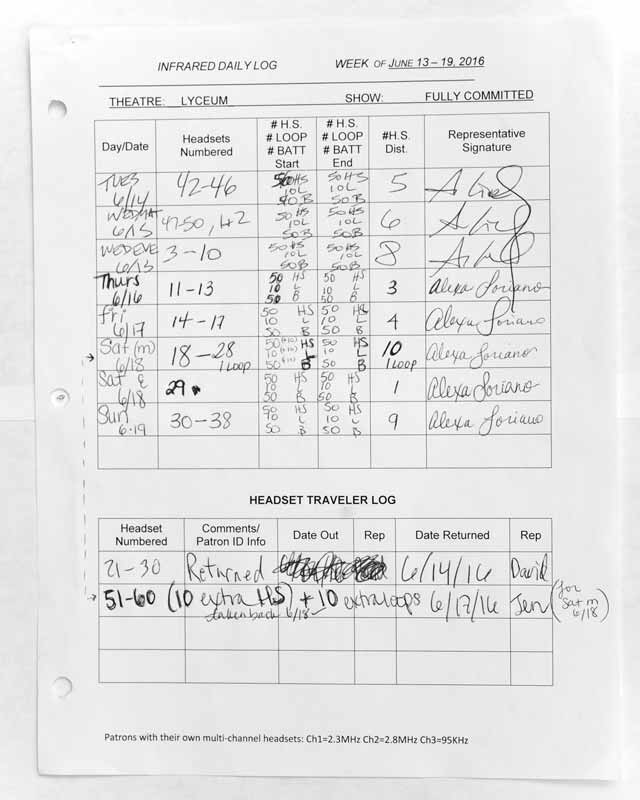 INFRARED DAILY LOG WEEK OF JUNE 13 – 19, 2016
THEATRE: LYCEUM SHOW: FULLY COMMITTED
Day/Date Headsets Numbered # H.S. # LOOP # BATT Start # H.S. # LOOP # BATT End #H.S. Dist. Representative Signature
TUES 6/14 42-46 50 HS 10L 50B 50 HS 10L 50B 5
WEDMAT 6/15 47-50, 42 50 HS 10L 50B 50 HS 10L 50B 6
WED EVE 6/15 3-10 50 HS 10L 50B 50 HS 10L 50B 8
Thurs 6/16 11-13 50 HS 10 L 50 B 50 HS 10 L 50 B 3 Alexa Soriano
Fri 6/17 14-17 50 HS 10 L 50 B 50 HS 10 L 50 B 4 Alexa Soriano
Sat (m) 6/18 18-28 1 LOOP 50 (+10) HS 10 (+10) L 50 (+10) B 50 HS 10 L 50 B 10 1 LOOP Alexa Soriano
Sat e 6/18 29 50 HS 10 L 50 B 50 HS 10 L 50 B 1 Alexa Soriano
Sun 6-19 30-38 50 HS 10 L 50 B 50 HS 10 L 50 B 9 Alexa Soriano
HEADSET TRAVELER LOG
Headset Numbered Comments/ Patron ID Info Date Out Rep Date Returned Rep
21-30 Returned 6/14/16 David
51-60 (10 extra HS) + 10 extra loops 6/17/16 Jen (for Sat m 6/18)
taken back 6/18
Patrons with their own multi-channel headsets: Ch1=2.3MHz Ch2=2.8MHz Ch3=95KHz